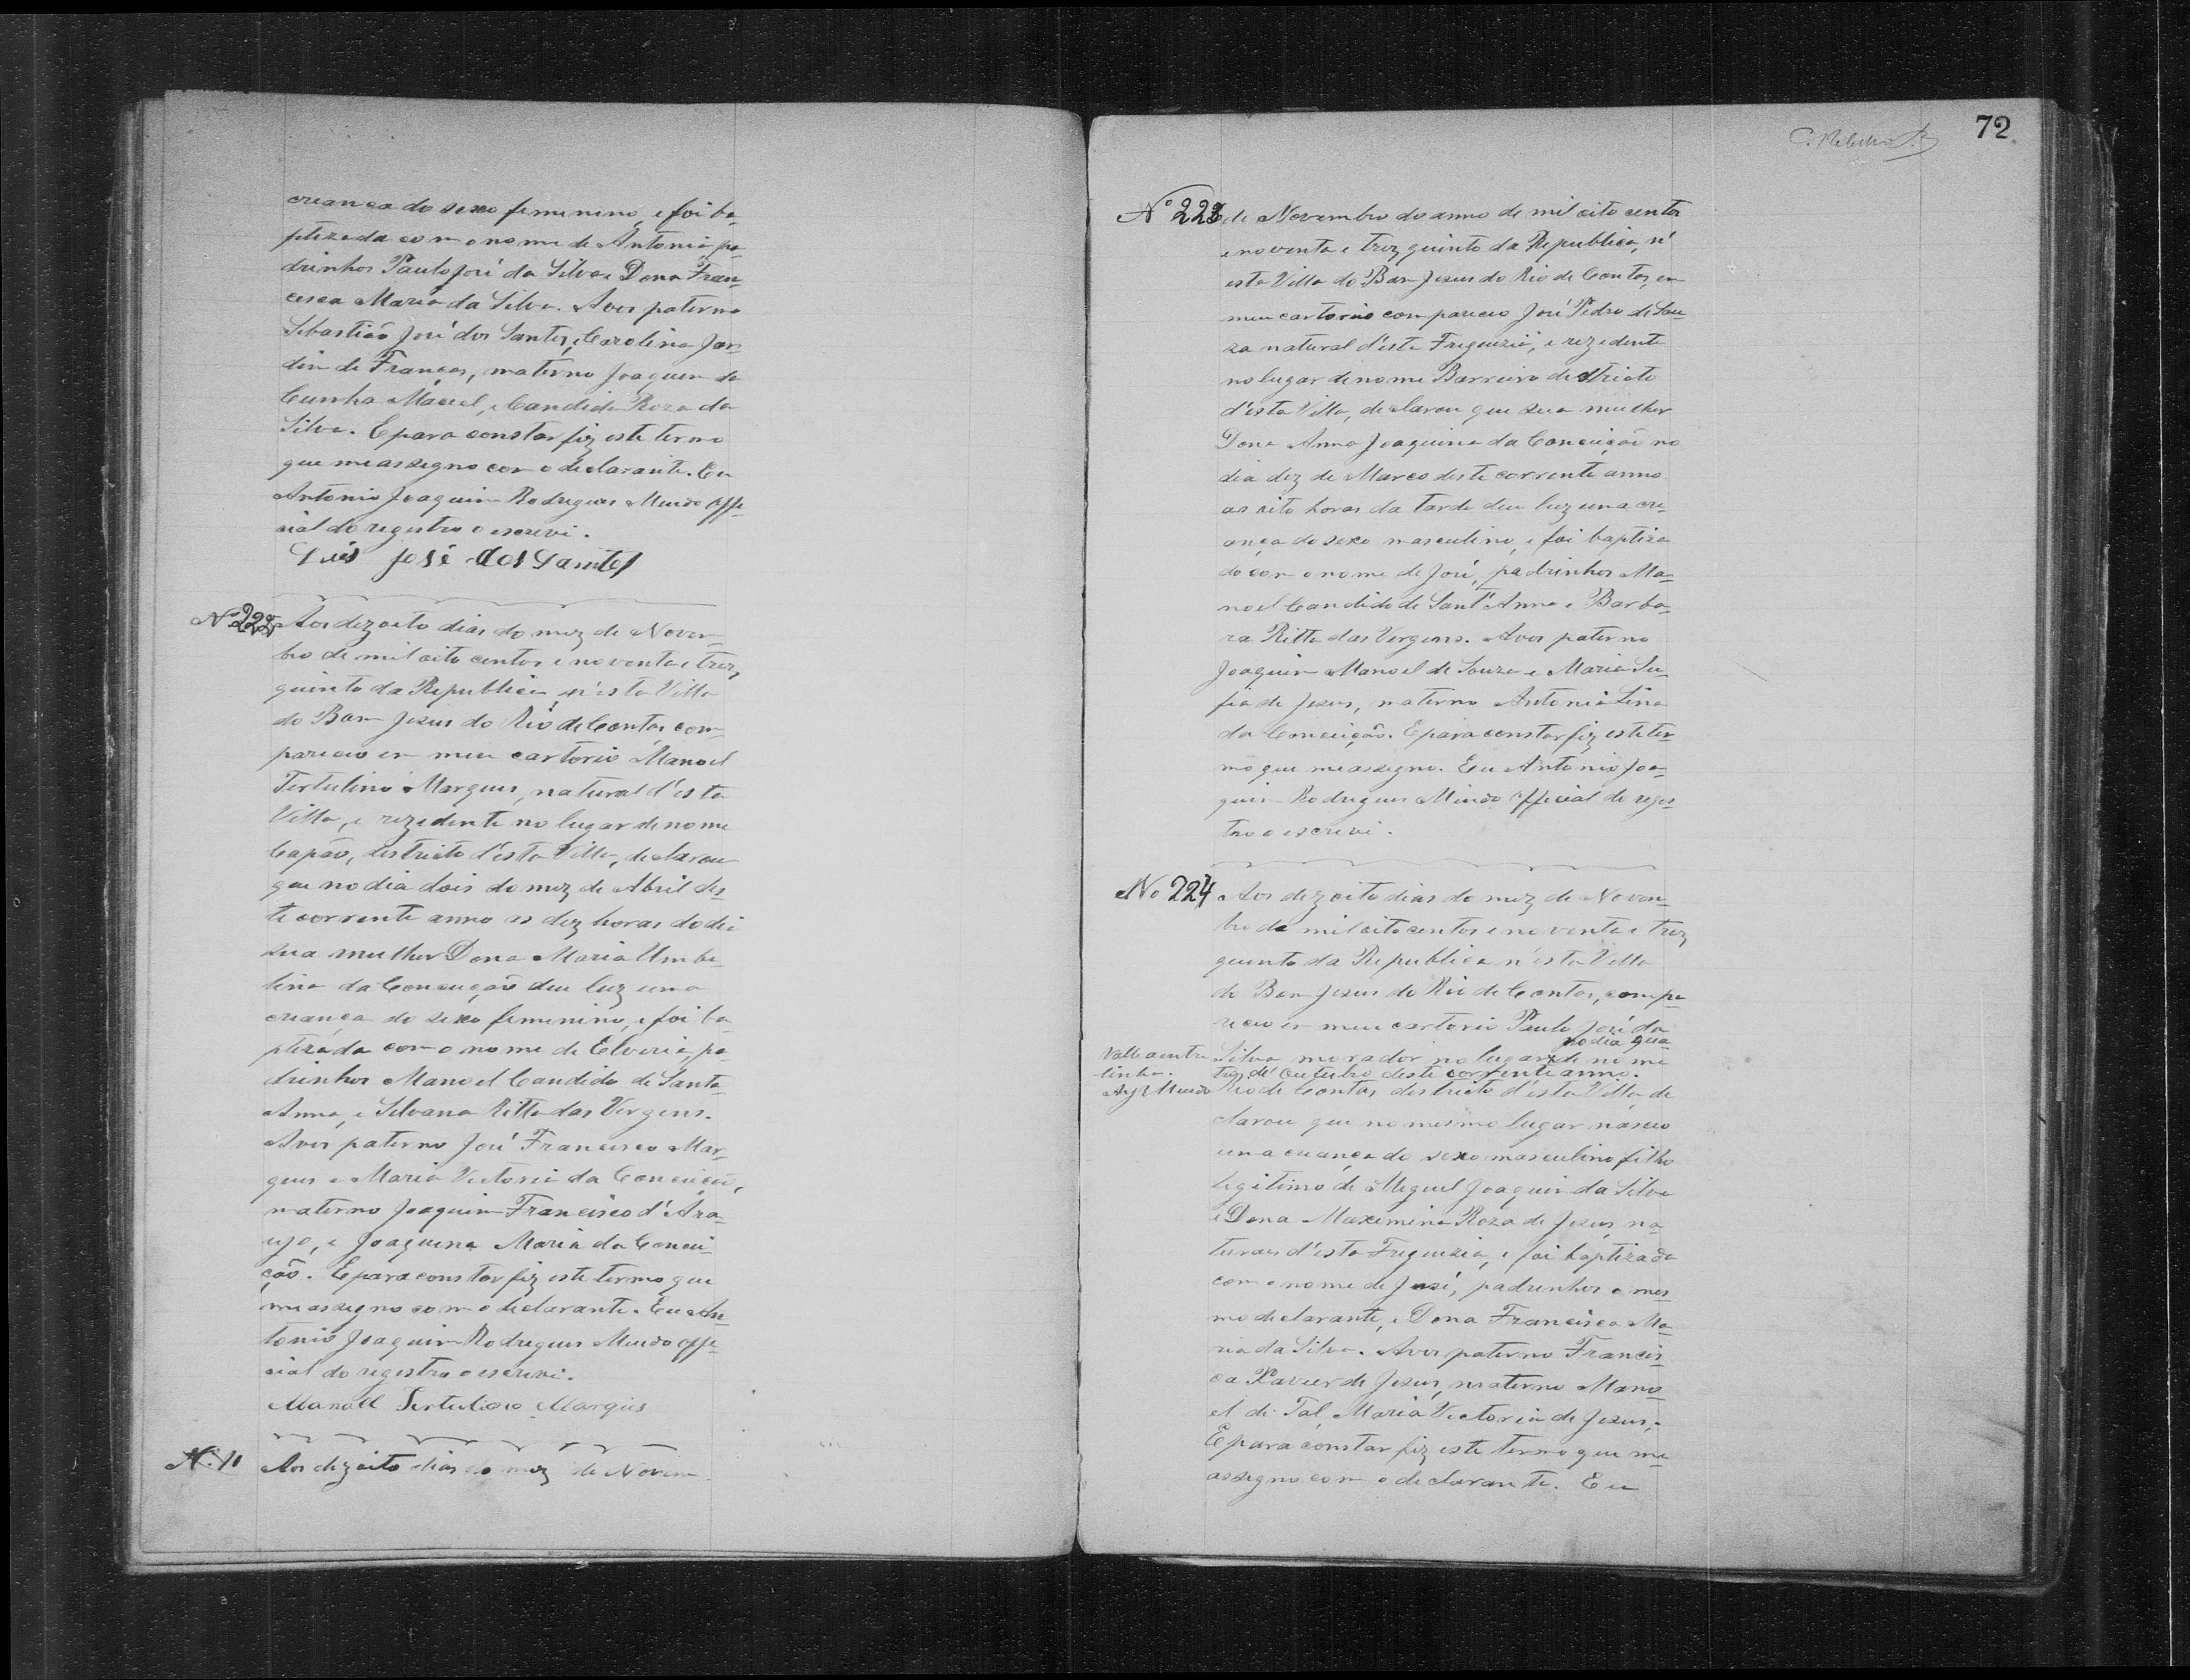 creança do sexo femenino, e foi ba-
ptizada com o nome de Antonia, pa-
drinhos Paulo José da Silva e Dona Fran-
cisca Maria da Silva. Avos paterno
Sebastião José dos Santos, e Carolina Jar-
din de França, materno Joaquim da
Cunha Maciel, e Candida Roza da
Silva. E para constar fiz este termo
que me assegno com o declarante. Eu
Antonio Joaquim Rodrigues Mundo offi-
cial do registro o escrevi.
Luis José dos Santos
Nº 222 Aos dezoito dias do mez de Novem-
bro de mil oito centos e noventa e trez,
quinto da Republica, n'esta Villa
do Bom Jezus do Rio de Contas, com-
pareceu em meu cartorio Manoel
Tertulino Marques, natural d'esta
Villa, e rezidente no lugar de nome
Capão, destricto d'esta Villa, declarou
que no dia dois do mez de Abril des-
te corrente anno as dez horas do dia
sua mulher Dona Maria Umbe-
lina da Conceição deu luz uma
creança do sexo femenino, e foi ba-
ptizada com o nome de Elveria, pa-
drinhos Manoel Candido de Santa
Anna, e Silvana Ritta das Vergens.
Avos paterno José Francisco Mar-
ques e Maria Victoria da Conceição,
materno Joaquim Francisco d'Ara-
ujo, e Joaquina Maria da Concei-
ção. E para constar fiz este termo que
me assegno com o declarante. Eu An-
tonio Joaquim Rodrigues Mundo offi-
cial do registro o escrevi.
Manoel Tertulino Marques
Aos dezoito dias do mez de Novem
72
Nº 223 de Novembro do anno de mil oito centos
e noventa e trez, quinto da Republica, n'
esta Villa do Bom Jezus do Rio de Contas, em
meu cartorio compareceu José Pedro de Sou-
za natural d'esta Freguezia, e rezedente
no lugar de nome Barreiro destricto
d'esta Villa, declarou que sua mulher
Dona Anna Joaquina da Conceição no
dia dez de Março deste corrente anno
as oito horas da tarde deu luz uma cre-
ança do sexo masculino, e foi baptiza
do com o nome de José, padrinhos Ma-
noel Candido de Sant'Anna e Barba-
ra Ritta das Vergens. Avos paterno
Joaquim Manoel de Souza e Maria Su-
fia de Jezus, materno Antonia Lina
da Conceição. E para constar fiz este ter-
mo que me assegno. Eu Antonio Joa-
quim Rodrigues Mundo official do regis-
tro o escrevi.
No 224 Aos dezoito dias do mez de Novem-
bro de mil oito centos e noventa e trez
quinto da Republica n'esta Villa
do Bom Jezus do Rio de Contas, compa-
receu em meu cartorio Paulo José da
no dia qua
Valle a entre Silva morador no lugar de nome
linha. tro de Outubro deste corrente anno.
Mundo Rio de Contas destricto d'esta Villa, de
clarou que no mesmo lugar nasceu
uma creança do sexo masculino filho
legitimo de Miguel Joaquim da Silva
e Dona Maxemina Roza de Jezus, na-
turaes d'esta Freguezia, e foi baptizada
com o nome de José, padrinhos o mes-
mo declarante, e Dona Francisca Ma-
ria da Silva. Avos paterno Francis-
ca Xavier de Jezus, materno Mano-
el de Tal, Maria Victoria de Jezus.
E para constar fiz este termo que me
assegno com o declarante. Eu